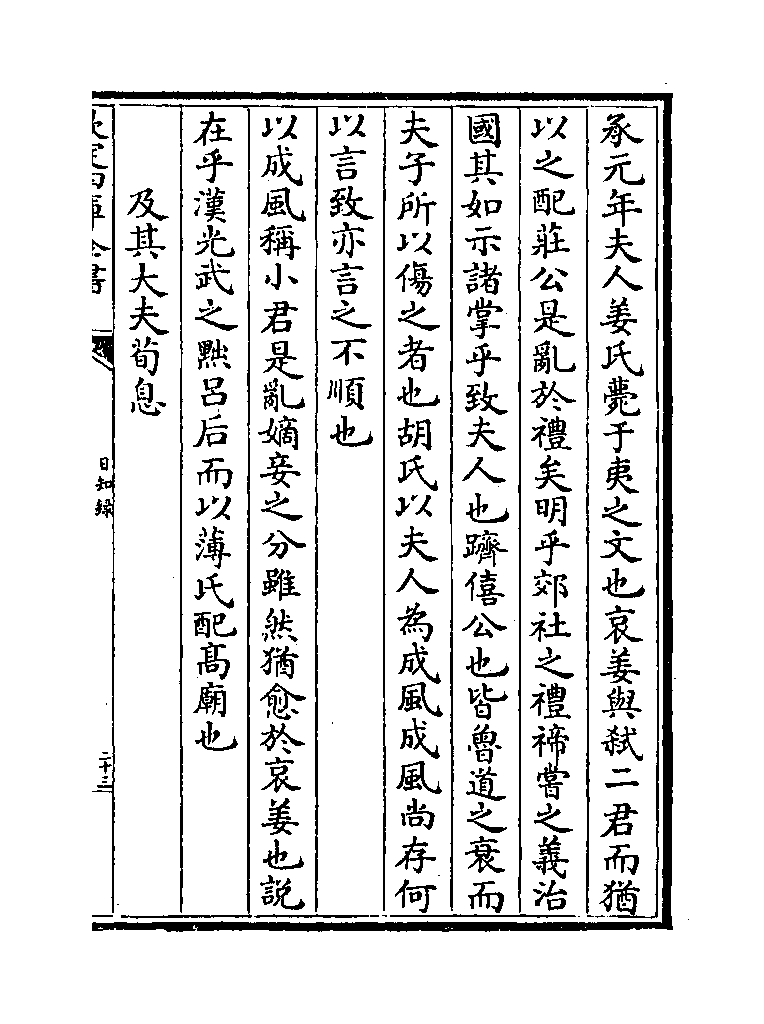 承元年夫人姜氏薨于夷之文也哀姜與弑二君而猶
以之配莊公是亂於禮矣明乎郊社之禮禘嘗之義治
國其如示諸掌乎致夫人也躋僖公也皆魯道之衰而
夫子所以傷之者也胡氏以夫人為成風成風尚存何
以言致亦言之不順也
以成風稱小君是亂嫡妾之分雖然猶愈於哀姜也説
在乎漢光武之黜呂后而以薄氏配髙廟也
及其大夫荀息
欽定四庫全書
日知錄
二十三